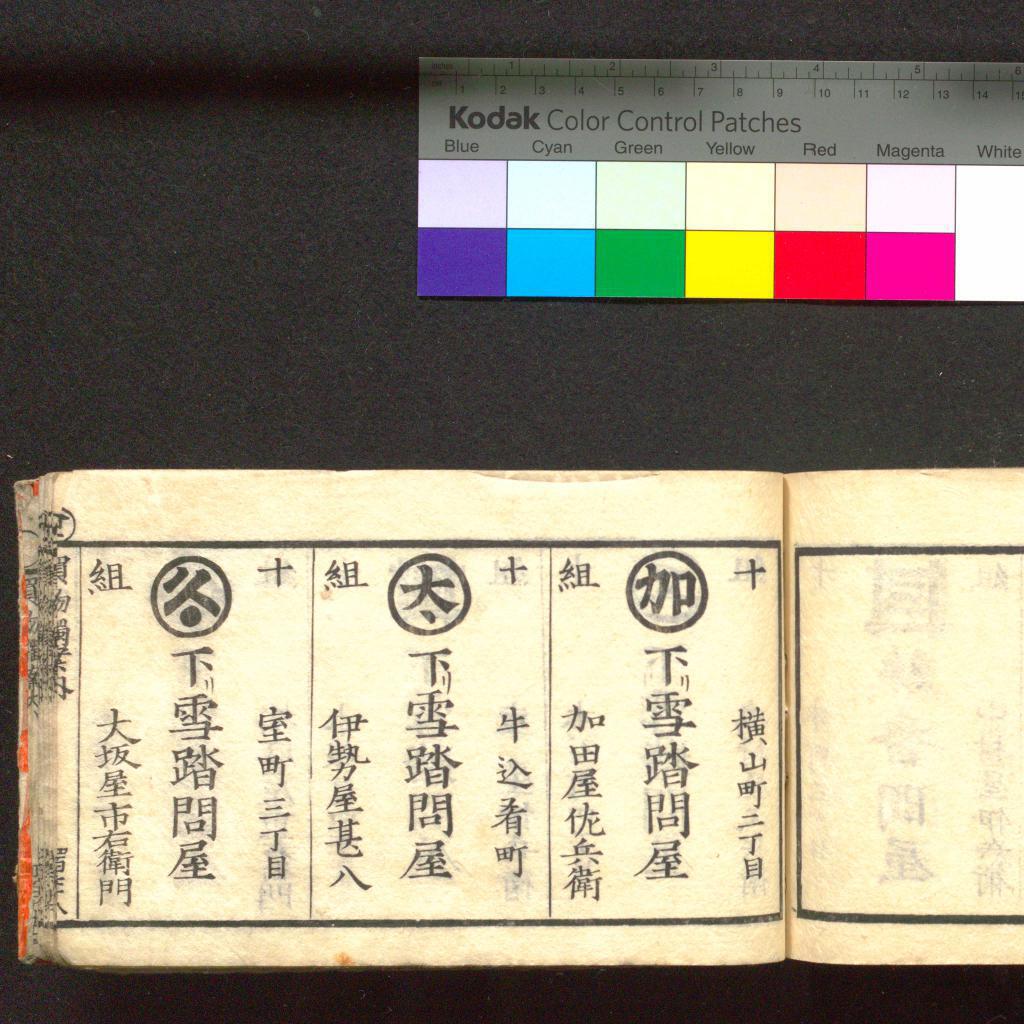 inches 1 2 3 4 5 6
cm 1 2 3 4 5 6 7 8 9 10 11 12 13 14 15
Kodak Color Control Patches
Blue Cyan Green Yellow Red Magenta White
十 加 組
横山町二丁目
下リ雪踏問屋
加田屋佐兵衛
十 大 組
牛込肴町
下リ雪踏問屋
伊勢屋甚八
十 久 組
室町三丁目
下リ雪踏問屋
大坂屋市右衛門